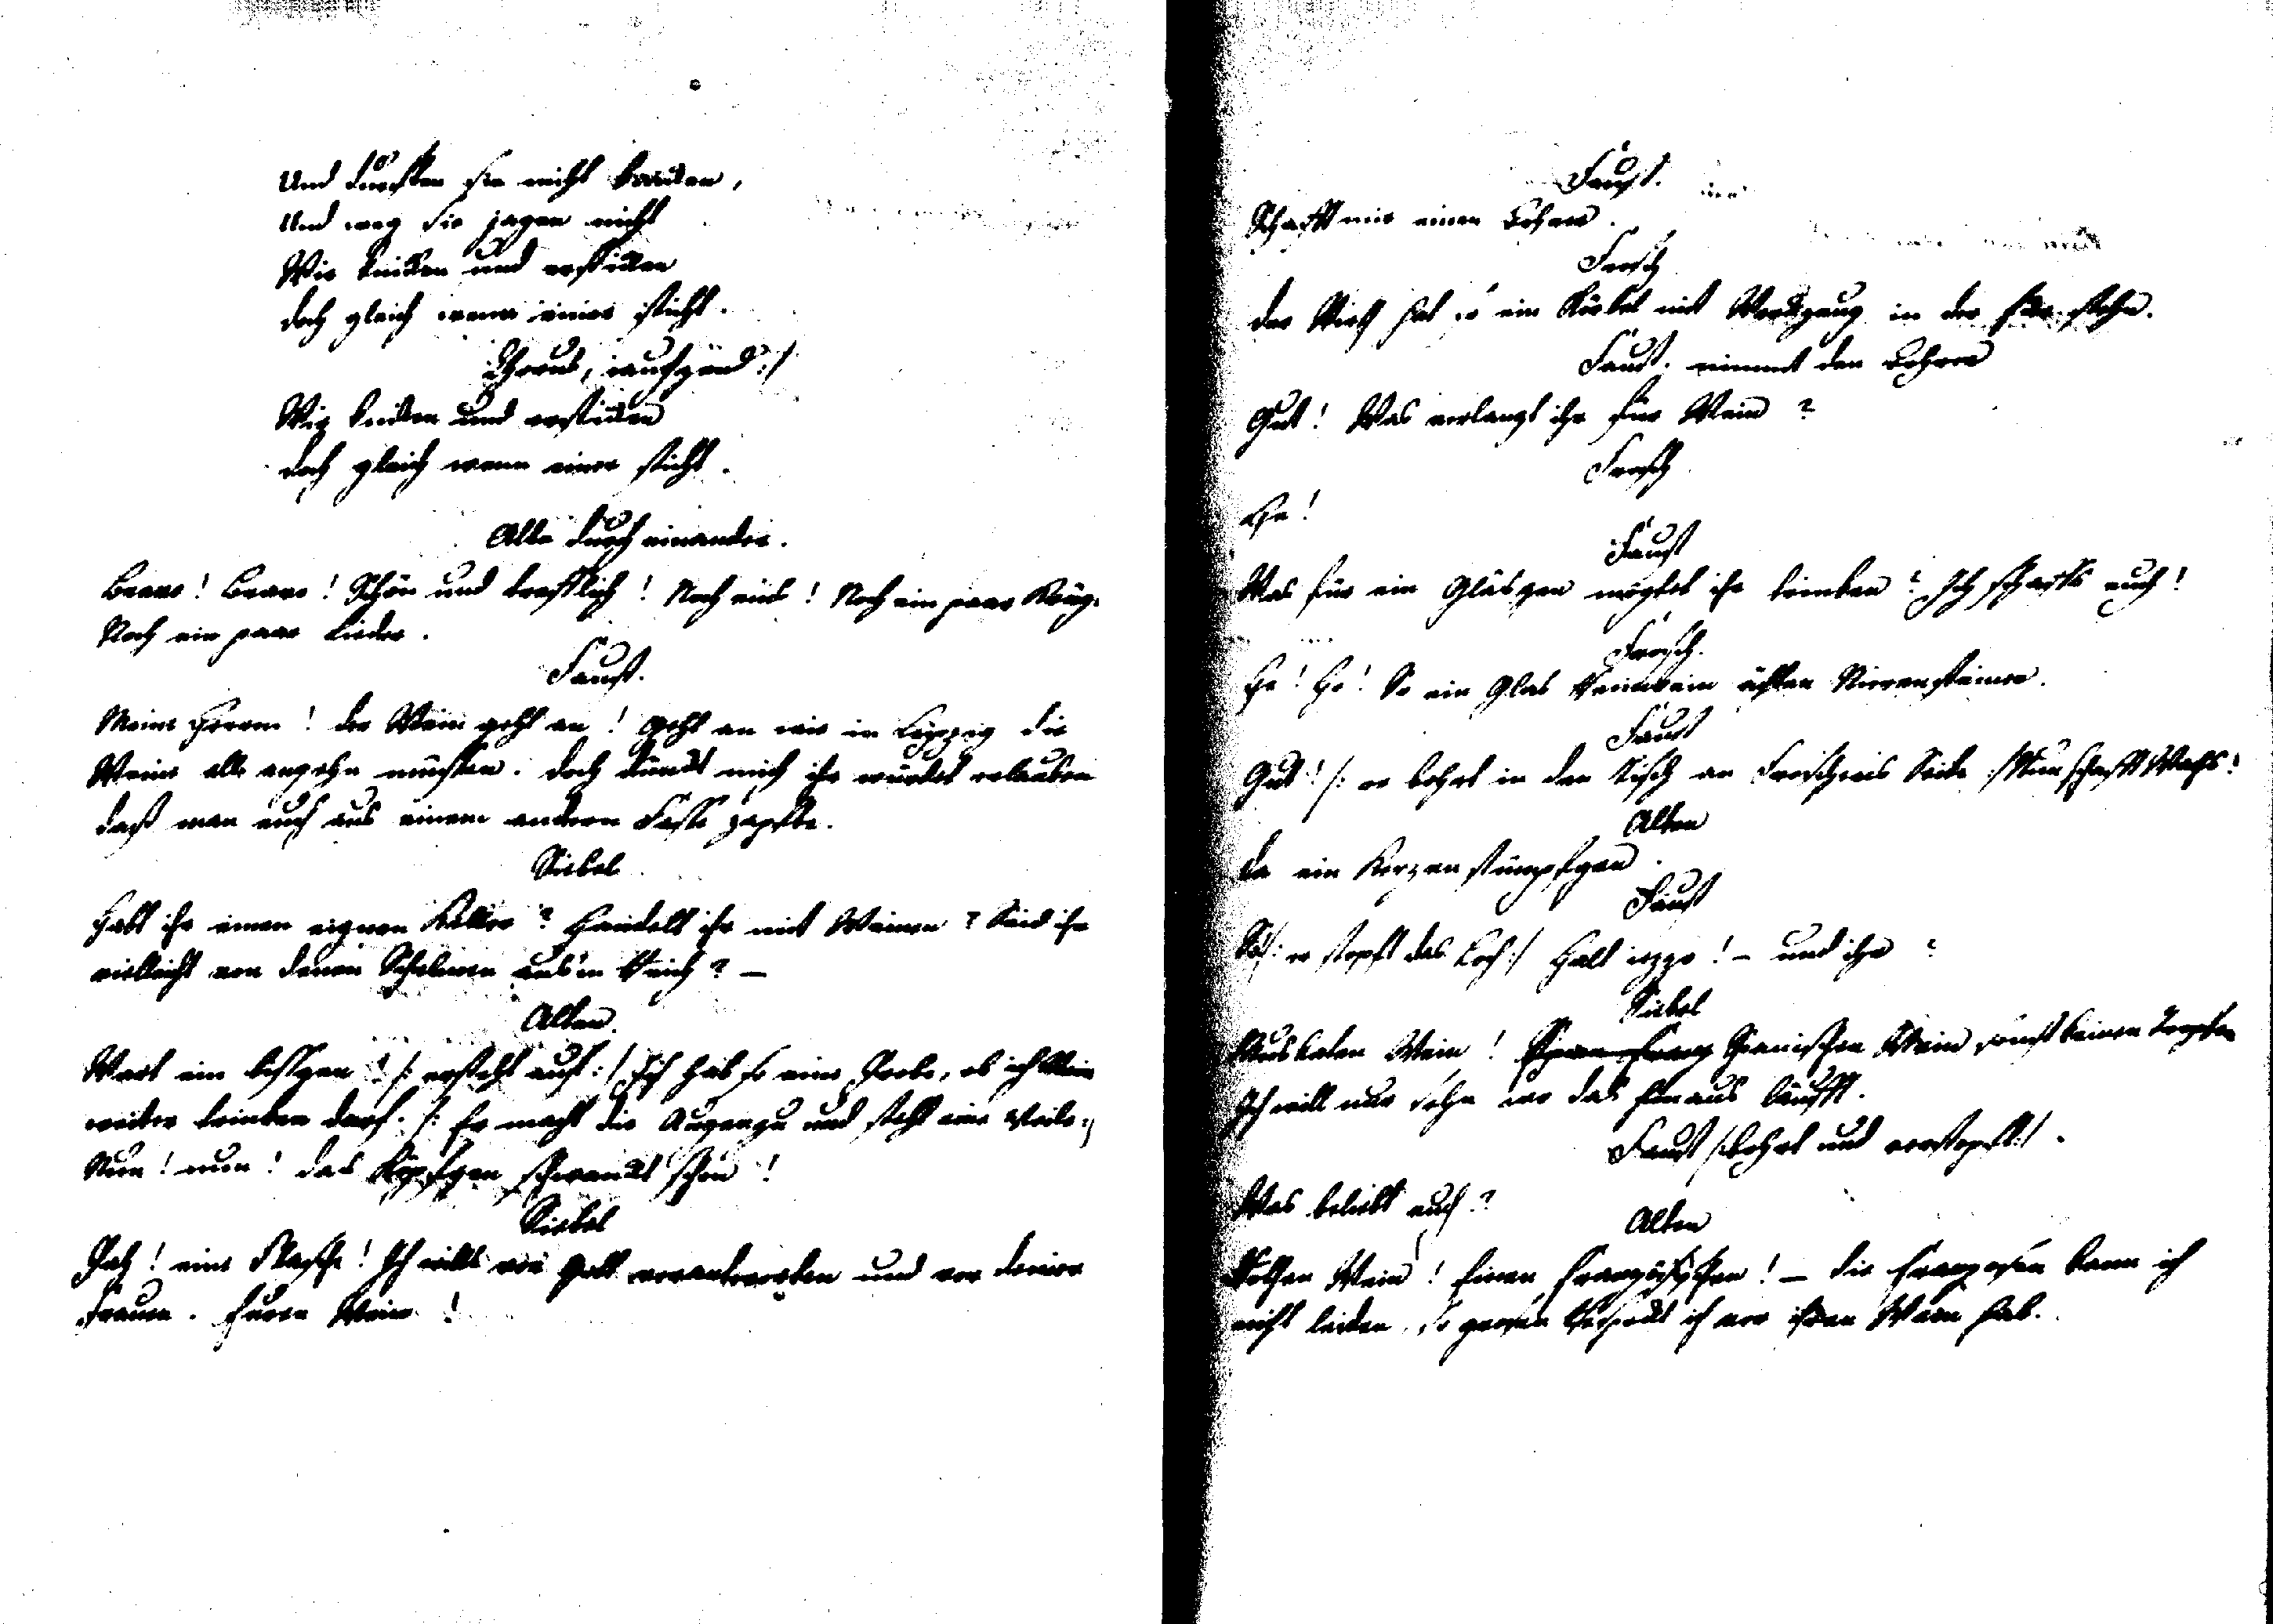 Und durften sie nicht knicken,
Und weg sie jagen nicht
Wir knicken und ersticken
Doch gleich wenn einer sticht.
Chorus, iauchzend:/
Wir knicken und ersticken
Doch gleich wenn einer sticht.
Alle durch einander.
Bravo! Bravo! Schön und trefflich! Noch eins! Noch ein paar Krüge
Noch ein paar Lieder.
Faust.
Meine Herren! Der Wein geht an! Geht an wie in Leipzig die
Weine alle angehn müssen. Doch dünckt mich ihr würdet erlauben
daß man euch aus einem andern Fasse zapfte.
Siebel
Habt ihr einen eignen Keller? Handelt ihr mit Weinen? Seid ihr
vielleicht von denen Schelmen aus'm Reich? —
Alten
Wart ein bissgen /: er steht auf :/ Ich hab so eine Probe, ob ich Wein
weiter trincken darf. /: Er macht die Augen zu und steht eine Weile :/
Nun! nun! das Köpfgen schwanckt schon!
Siebel
Pah! eine Flasche! Ich wills vor Gott verantworten und vor deiner
Frauen. Euren Wein!
Faust.
Schafft mir einen Bohrer.
Frosch
Der Wirth hat so ein Körbel mit Werckzeug in der Ecke stehn.
Faust. nimmt den Bohrer
Gut! Was verlangt ihr für Wein?
Frosch
He!
Faust
Was für ein Gläsgen mögtet ihr trincken? Ich schaffs euch!
Frosch.
He! He! So ein Glas Reinwein ächten Nierensteiner.
Faust
Gut! /: er bohrt in den Tisch an Froschens Seite :/ Nun schafft Wachs!
Alten
Da ein Kerzenstümpfgen.
Faust
So /: er stopft das Loch :/ Halt iezzo! – und ihr?
Siebel
Muskaten Wein! Spanischen Wein sonst keinen Tropfen
Ich will nur sehn wo das hinaus läufft.
Faust /: bohrt und verstopft :/.
Was beliebt euch?
Alten
Rothen Wein! Einen Französchischen! — Die Franzosen kann ich
nicht leiden, so grosen Respeckt ich vor ihren Wein hab.